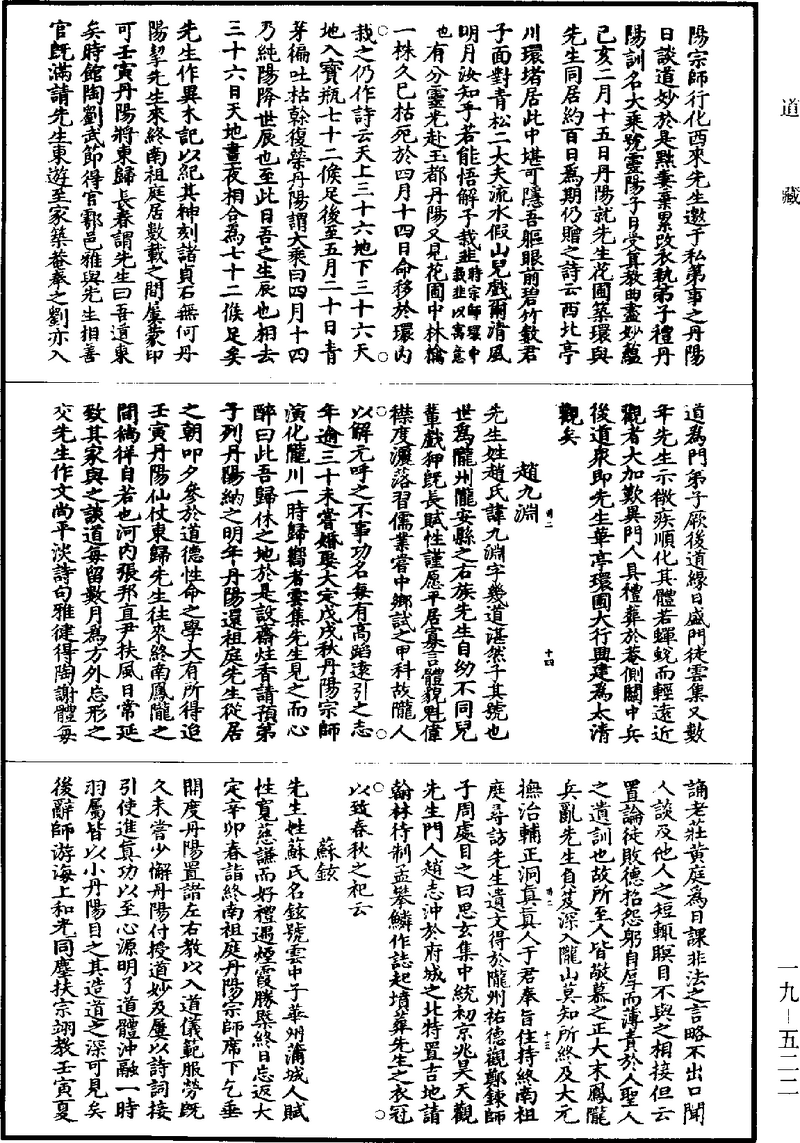 道藏
陽宗師行化西來先生邀于私第事之丹陽
日談道妙於是黜妻棄累改衣執弟子禮丹
陽訓名大乘號靈陽子日受真教曲盡妙蘊
己亥二月十五日丹陽就先生花圃築環與
先生同居約百日為期仍贈之詩云西北亭
川環堵居此中堪可隱吾軀眼前碧竹數君
子面對青松二大夫流水假山兒戲爾清風
明月汝知乎若能悟解子栽韭時宗師環中栽韭以寓意
也有分靈光赴玉都丹陽又見花圃中林檎
一株久已枯死於四月十四日命移於環內
栽之仍作詩云天上三十六地下三十六天
地入寶瓶七十二候足後至五月二十日青
芽徧吐枯榦復榮丹陽謂大乘曰四月十四
乃純陽降世辰也至此日吾之生辰也相去
三十六日天地晝夜相合為七十二候足矣
先生作異木記以紀其神刻諸貞石無何丹
陽挈先生來終南祖庭居數載之間屢蒙印
可壬寅丹陽將東歸長春謂先生曰吾道東
矣時館陶劉武節得官鄠邑雅與先生相善
官既滿請先生東遊至家築菴奉之劉亦入
道為門弟子厥後道緣日盛門徒雲集又數
年先生示微疾順化其體若蟬蛻而輕遠近
觀者大加歎異門人具禮葬於菴側關中兵
後道衆即先生華亭環圃大行興建為太清
觀矣
趙九淵
先生姓趙氏諱九淵字幾道湛然子其號也
世為隴州隴安縣之右族先生自幼不同兒
輩戲狎既長賦性謹愿平居寡言體貌魁偉
襟度灑落習儒業嘗中鄉試之甲科故隴人
以解元呼之不事功名每有高蹈遠引之志
年逾三十未嘗婚娶大定戊戌秋丹陽宗師
演化隴川一時歸嚮者雲集先生見之而心
醉曰此吾歸休之地於是設齋炷香請預弟
子列丹陽納之明年丹陽還祖庭先生從居
之朝叩夕參於道德性命之學大有所得迨
壬寅丹陽仙仗東歸先生往來終南鳳隴之
間徜徉自若也河內張邦直尹扶風日常延
致其家與之談道每留數月為方外忘形之
交先生作文尚平淡詩句雅健得陶謝體每
誦老莊黃庭為日課非法之言略不出口聞
人談及他人之短輒瞑目不與之相接但云
置論徒敗德招怨躬自厚而薄責於人聖人
之遺訓也故所至人皆敬慕之正大末鳳隴
兵亂先生自芨深入隴山莫知所終及大元
撫治輔正洞真真人于君奉旨住持終南祖
庭尋訪先生遺文得於隴州祐德觀鄭鍊師
子周處目之曰思玄集中統初京兆昊天觀
先生門人趙志沖於府城之北特置吉地請
翰林待制孟攀鱗作誌起墳葬先生之衣冠
以致春秋之祀云
蘇鉉
先生姓蘇氏名鉉號雲中子華州蒲城人賦
性寬慈謙而好禮遇煙霞勝槩終日忘返大
定辛卯春詣終南祖庭丹陽宗師席下乞垂
開度丹陽置諸左右教以入道儀範服勞既
久未嘗少懈丹陽付授道妙及屢以詩詞接
引使進真功以至心源明了道體沖融一時
羽屬皆以小丹陽目之其造道之深可見矣
後辭師游海上和光同塵扶宗翊教壬寅夏
一九－五二二